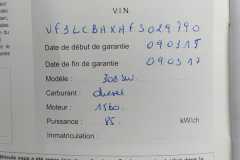 V.I.N.
VF3LCBHXHFS029790
Date de début de garantie 090315
Date de fin de garantie 090317
Modèle : 308 SW.
Carburant : diesel
Moteur : 1560.
Puissance : 85. kW/ch
Immatriculation :